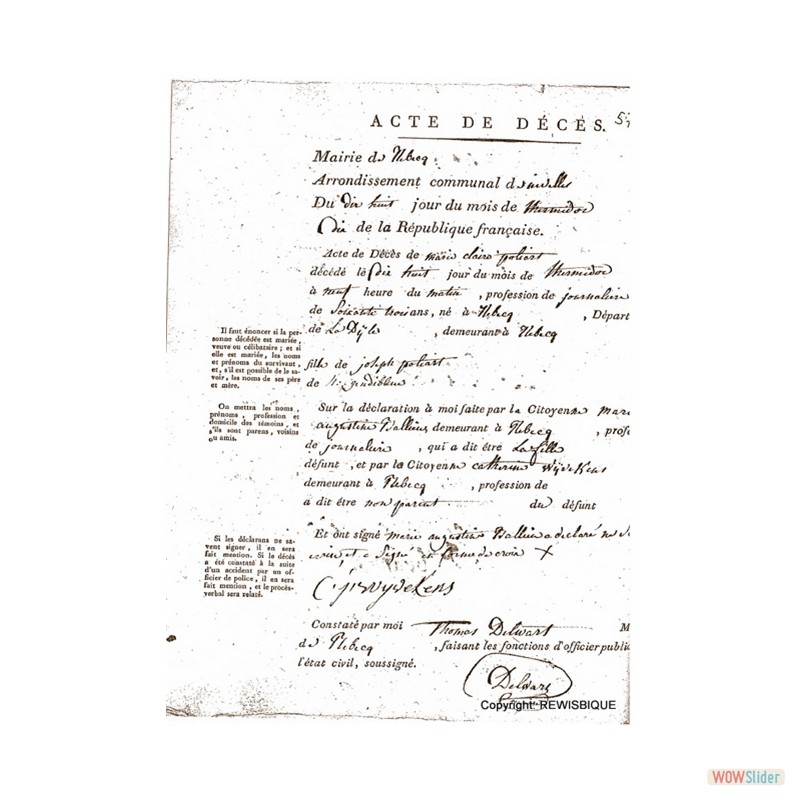 ACTE DE DÉCÈS.
Mairie de Rebecq.
Arrondissement communal de nivelles
Du dix huit jour du mois de thermidor
Dix de la République française.
Acte de Décès de marie claire poliart
décédé le dix huit jour du mois de thermidor
à neuf heure du matin , profession de journaliere
de Soixante trois ans, né à Rebecq , Départ
de La Dÿle , demeurant à Rebecq
fille de joseph poliart
de
Il faut énoncer si la per-
sonne décédée est mariée,
veuve ou célibataire ; et si
elle est mariée, les noms
et prénoms du survivant,
et, s'il est possible de le sa-
voir, les noms de ses père
et mère.
Sur la déclaration à moi faite par la Citoyenne marie
augustine demeurant à Rebecq , profe
de journaliere , qui a dit être La fille
défunt , et par la Citoyenne catherine Wÿdekens
demeurant à Rebecq , profession de
a dit être non parent du défunt
On mettra les noms,
prénoms, profession et
domicile des témoins, et
s'ils sont parens, voisins
ou amis.
Et ont signé marie augustine a declaré ne
et a Signé en forme de croix X
Si les déclarans ne sa-
vent signer, il en sera
fait mention. Si le décès
a été constaté à la suite
d'un accident par un of-
ficier de police, il en sera
fait mention, et le procès-
verbal sera relaté.
Constaté par moi Thomas Delwart M
de Rebecq , faisant les fonctions d'officier public
l'état civil, soussigné.
Delwart
Copyright REWISBIQUE
WOWSlider